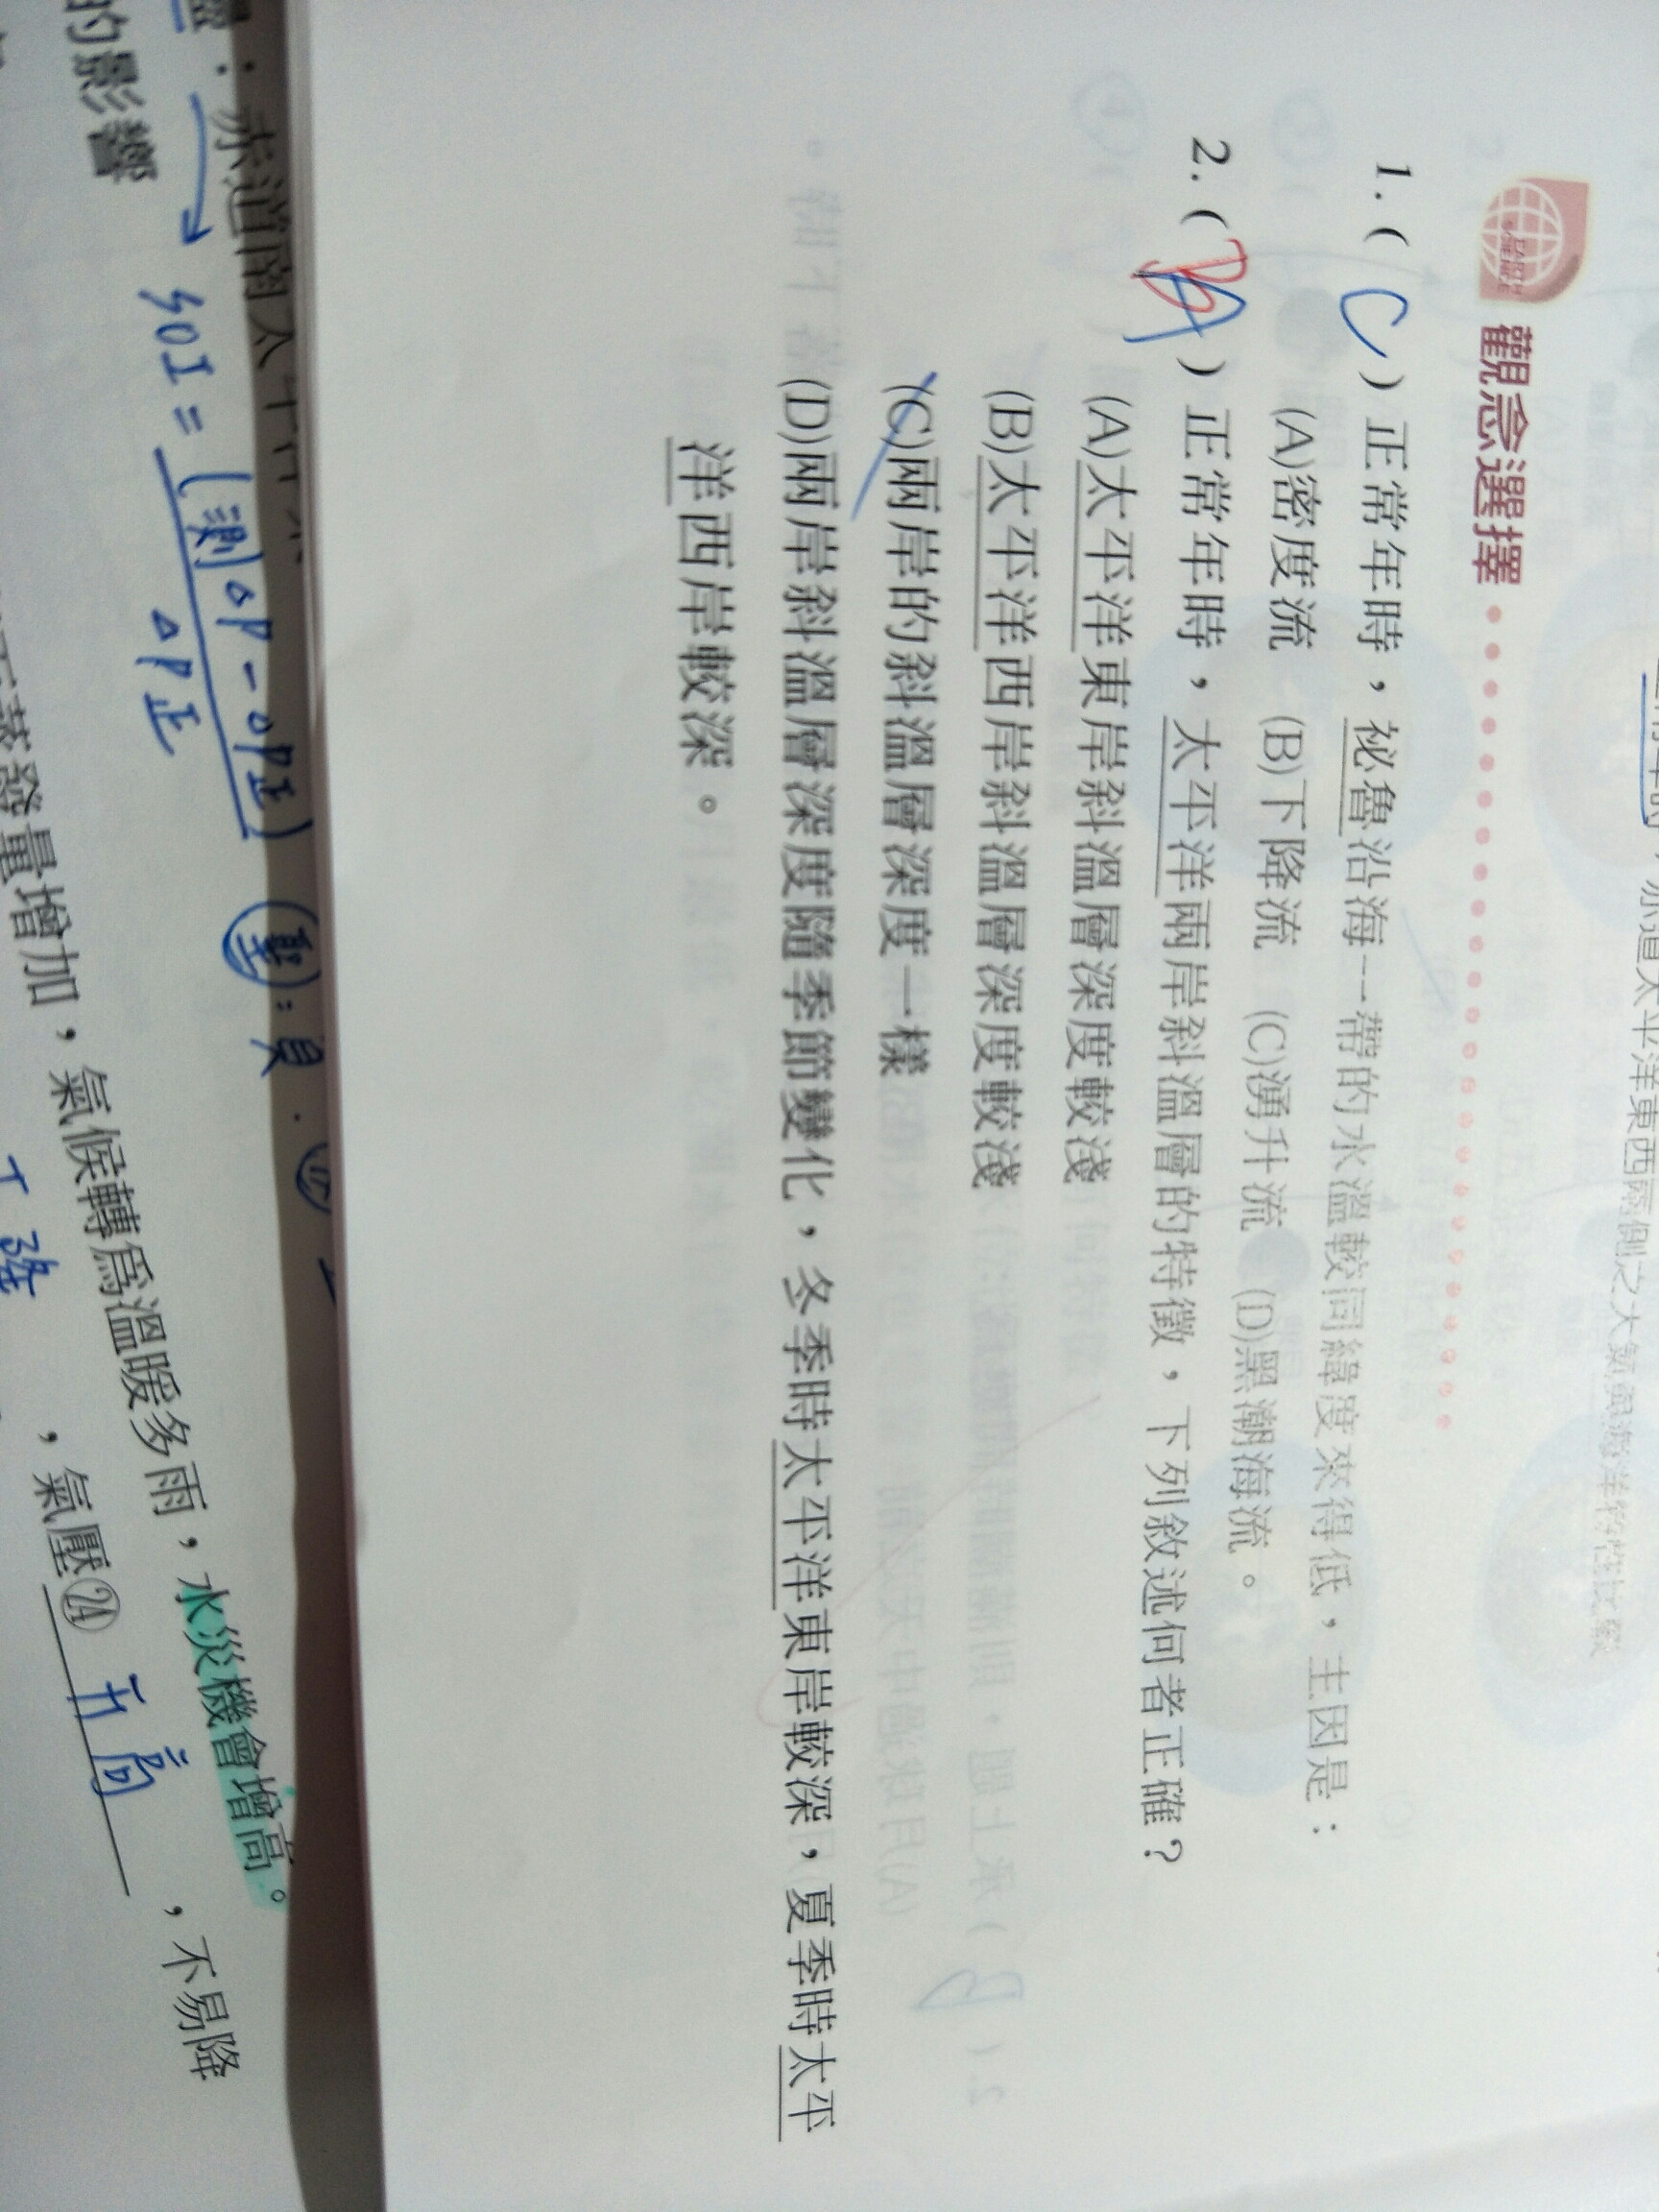 觀念選擇
1.( C )正常年時，祕魯沿海一帶的水溫較同緯度來得低，主因是：
(A)密度流 (B)下降流 (C)湧升流 (D)黑潮海流。
2.( A )正常年時，太平洋兩岸斜溫層的特徵，下列敘述何者正確？
(A)太平洋東岸斜溫層深度較淺
(B)太平洋西岸斜溫層深度較淺
(C)兩岸的斜溫層深度一樣
(D)兩岸斜溫層深度隨季節變化，冬季時太平洋東岸較深，夏季時太平
洋西岸較深。
：赤道南太平洋
SOI = (測△P - △P正)
△P正
聖：負
的影響
蒸發量增加，氣候轉為溫暖多雨，水災機會增高。
下降
，氣壓㉔ 升高 ，不易降
赤道太平洋東西兩側之大氣與海洋特性比較